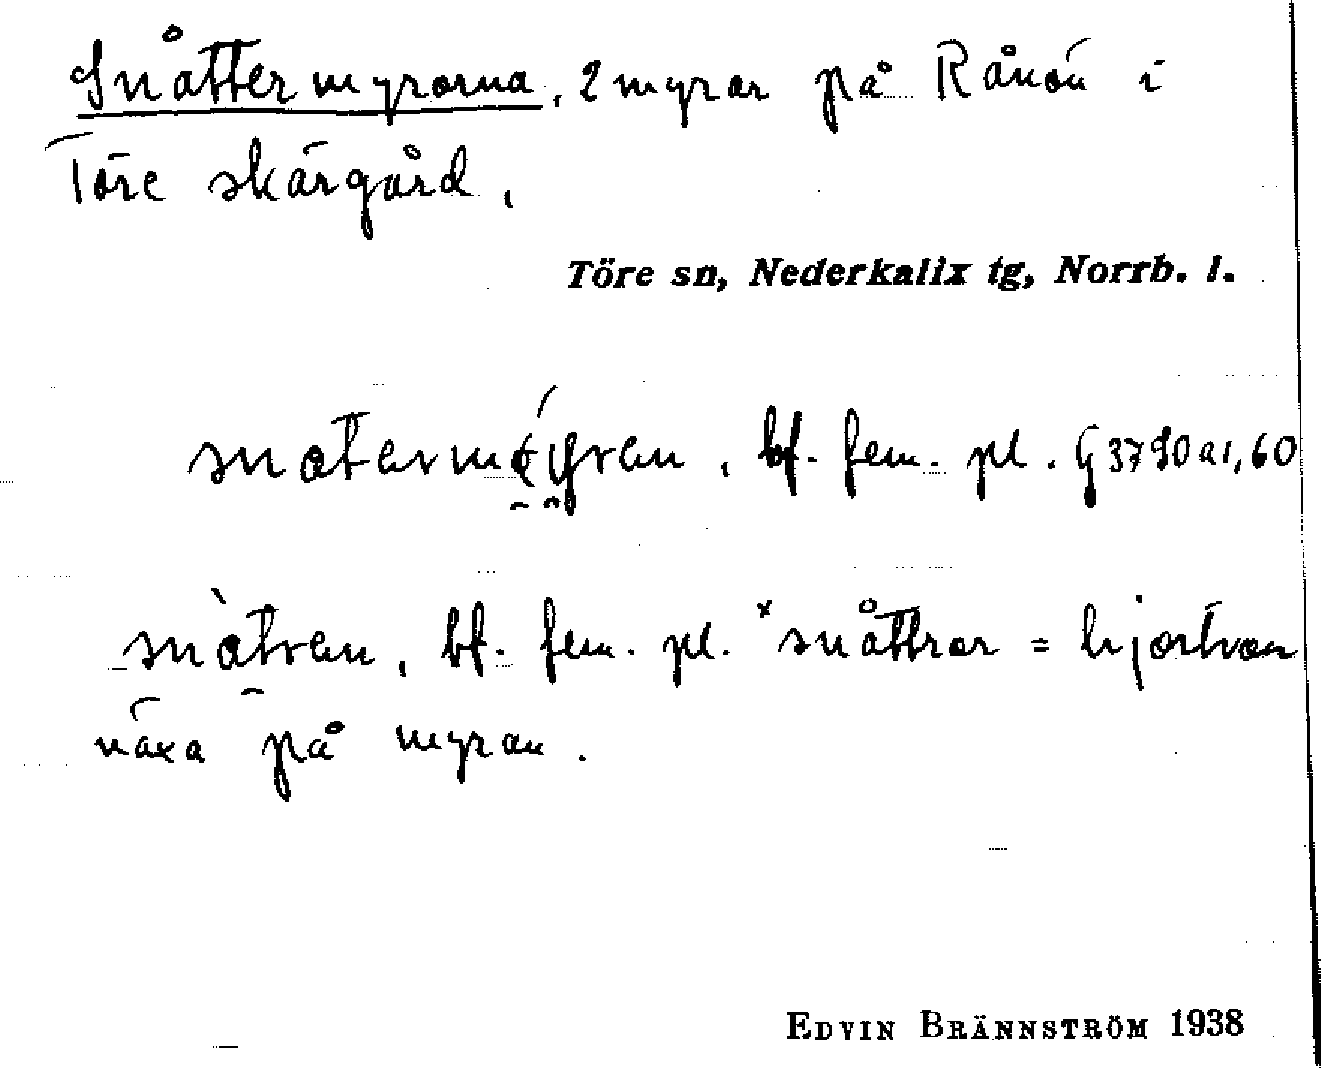 Snåttermyrorna, 2 myrar på Rånön i
Töre skärgård.
Töre sn, Nederkalix tg, Norrb. l.
bf. fem. pl. G 3790 a1, 60
snåtren, bf. fem. pl. *snåttrar = hjortron
växa på myran.
EDVIN BRÄNNSTRÖM 1938